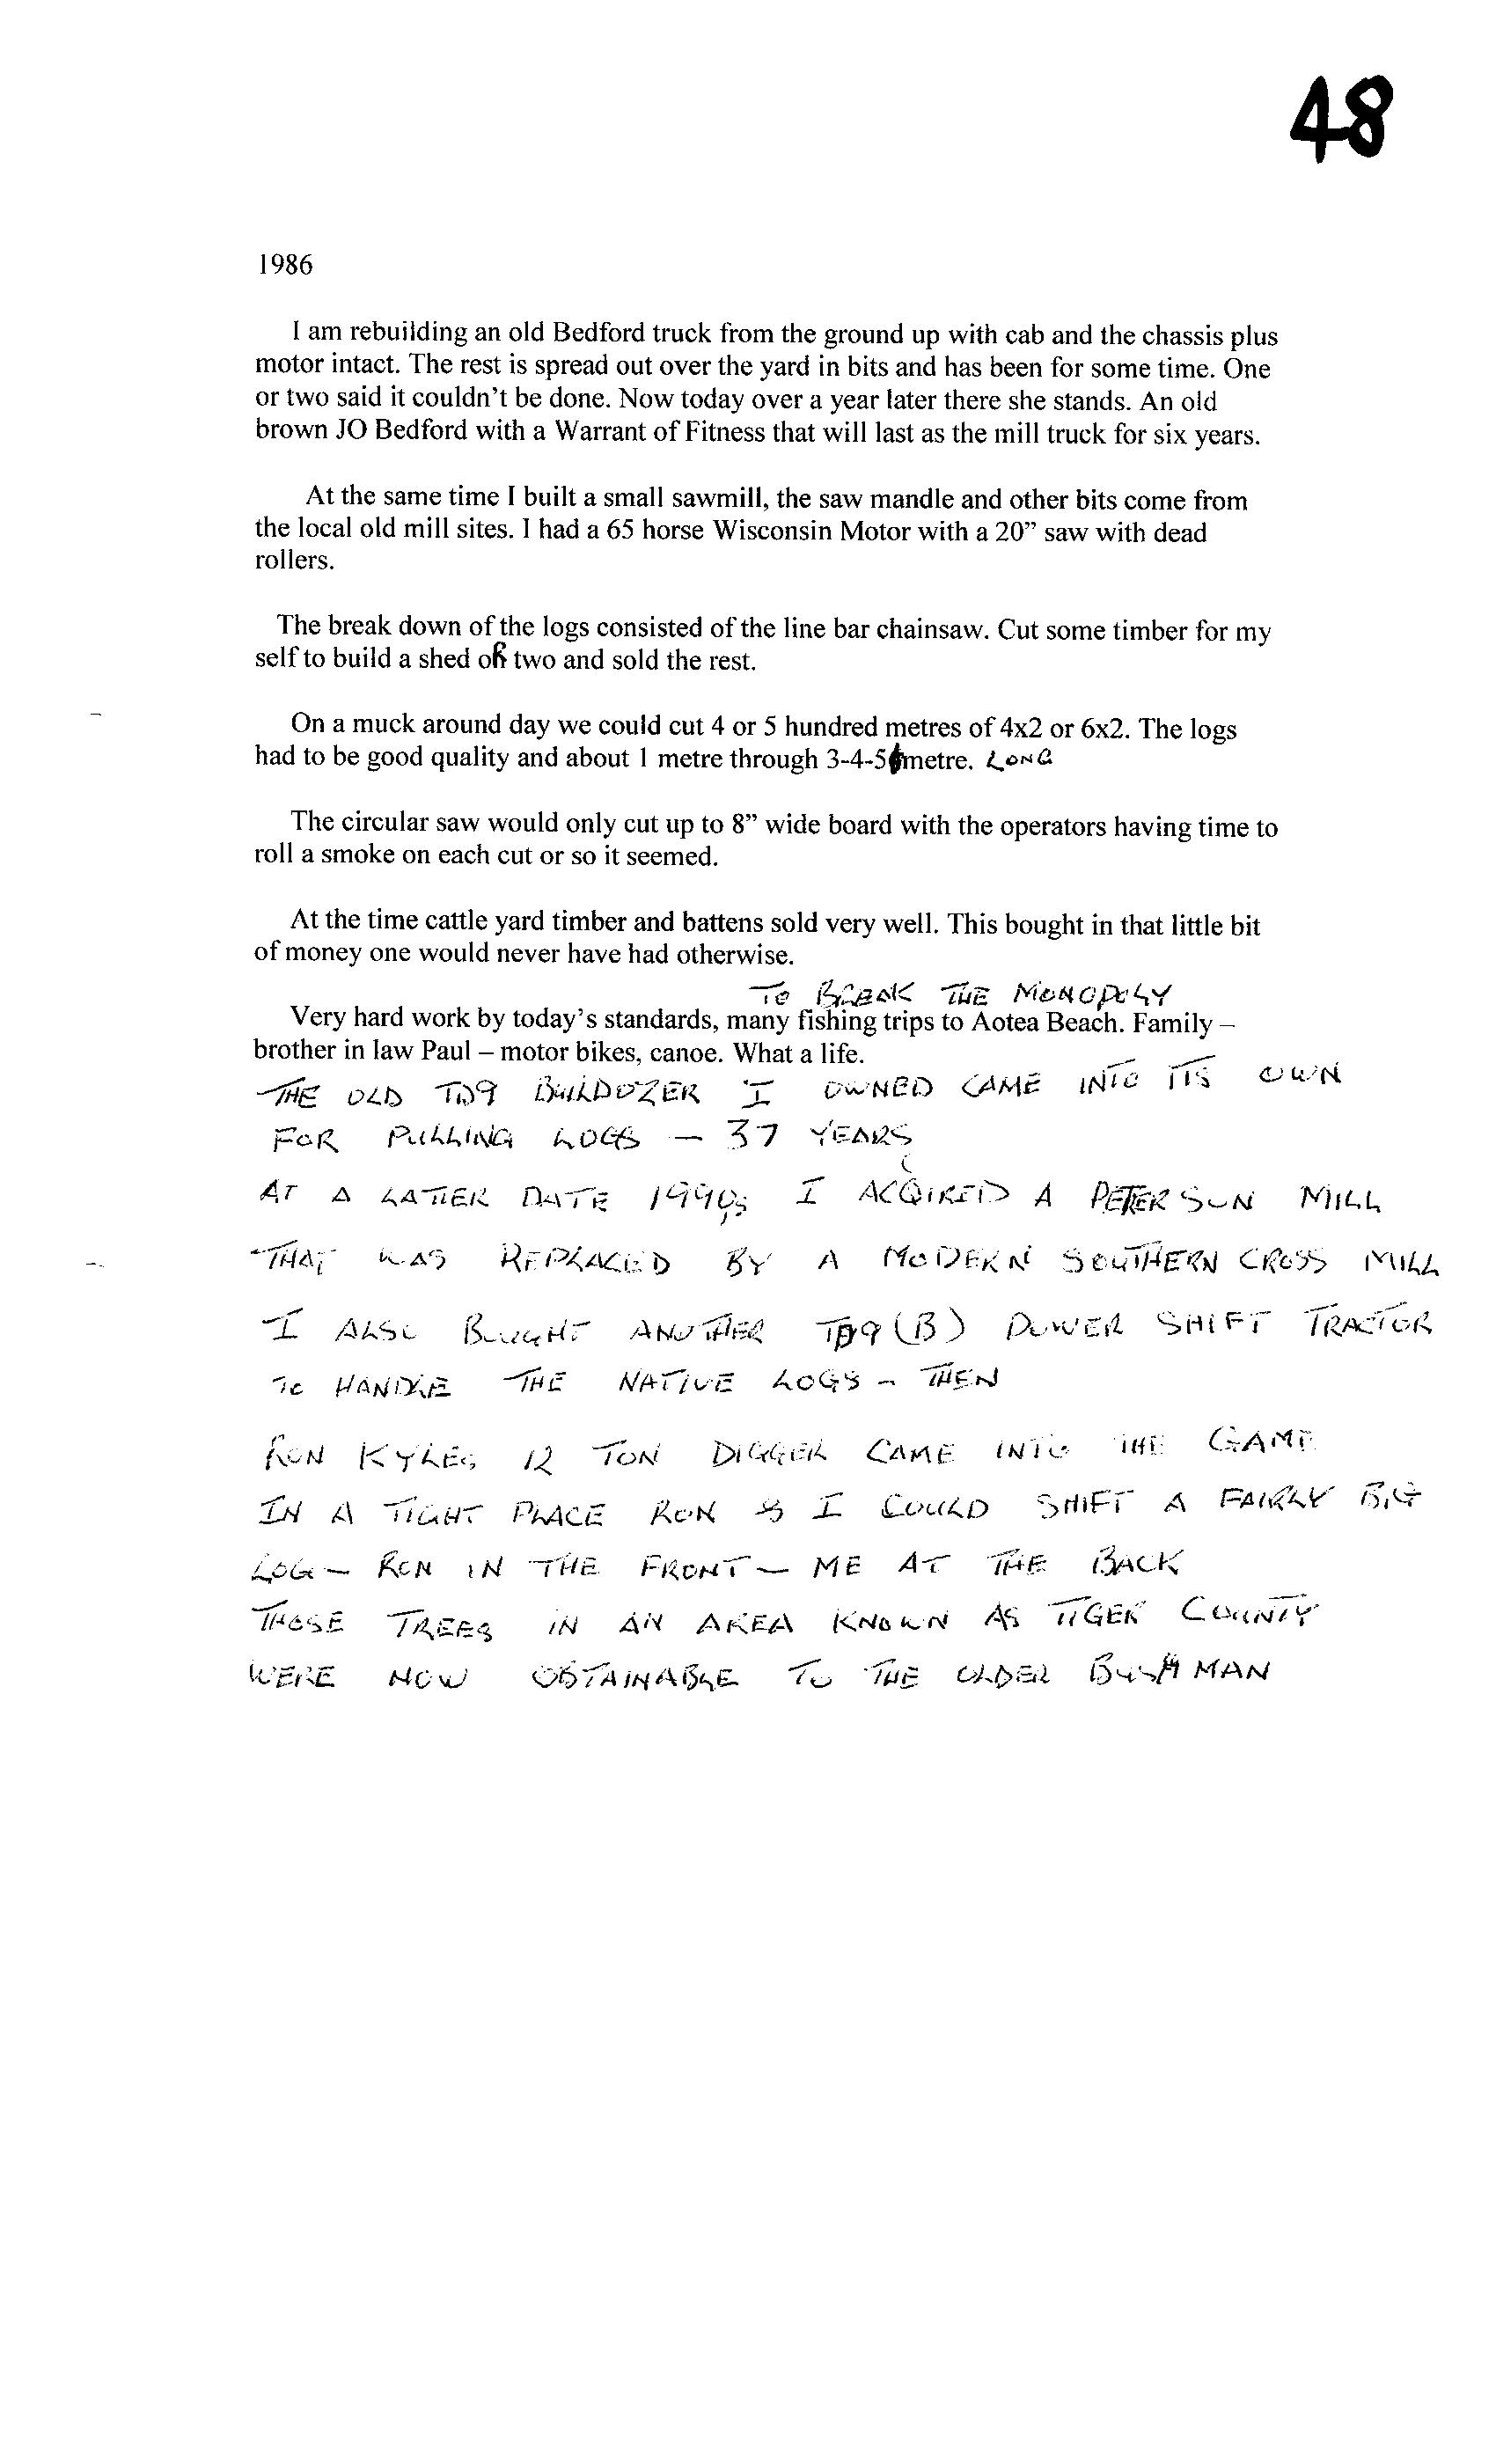 48
1986
I am rebuilding an old Bedford truck from the ground up with cab and the chassis plus
motor intact. The rest is spread out over the yard in bits and has been for some time. One
or two said it couldn't be done. Now today over a year later there she stands. An old
brown JO Bedford with a Warrant of Fitness that will last as the mill truck for six years.
At the same time I built a small sawmill, the saw mandle and other bits come from
the local old mill sites. I had a 65 horse Wisconsin Motor with a 20" saw with dead
rollers.
The break down of the logs consisted of the line bar chainsaw. Cut some timber for my
self to build a shed oR two and sold the rest.
On a muck around day we could cut 4 or 5 hundred metres of 4x2 or 6x2. The logs
had to be good quality and about 1 metre through 3-4-5 metre. LONG
The circular saw would only cut up to 8" wide board with the operators having time to
roll a smoke on each cut or so it seemed.
At the time cattle yard timber and battens sold very well. This bought in that little bit
of money one would never have had otherwise.
TO BREAK THE MONOPOLY
Very hard work by today's standards, many fishing trips to Aotea Beach. Family –
brother in law Paul – motor bikes, canoe. What a life.
THE OLD TD9 BULLDOZER I OWNED CAME INTO ITS OWN
FOR PULLING LOGS — 37 YEARS
AT A LATTER DATE 1990,s I ACQIRED A PETERSON MILL
THAT WAS REPLACED BY A MODERN SOUTHERN CROSS MILL
I ALSO BOUGHT ANOTHER TD9 (B) POWER SHIFT TRACTOR
TO HANDLE THE NATIVE LOGS – THEN
RON KYLES 12 TON DIGGER CAME INTO THE GAME
IN A TIGHT PLACE RON & I COULD SHIFT A FAIRLY BIG
LOG — RON IN THE FRONT — ME AT THE BACK
THOSE TREES IN AN AREA KNOWN AS TIGER COUNTY
WERE NOW OBTAINABLE TO THE OLDER BUSHMAN